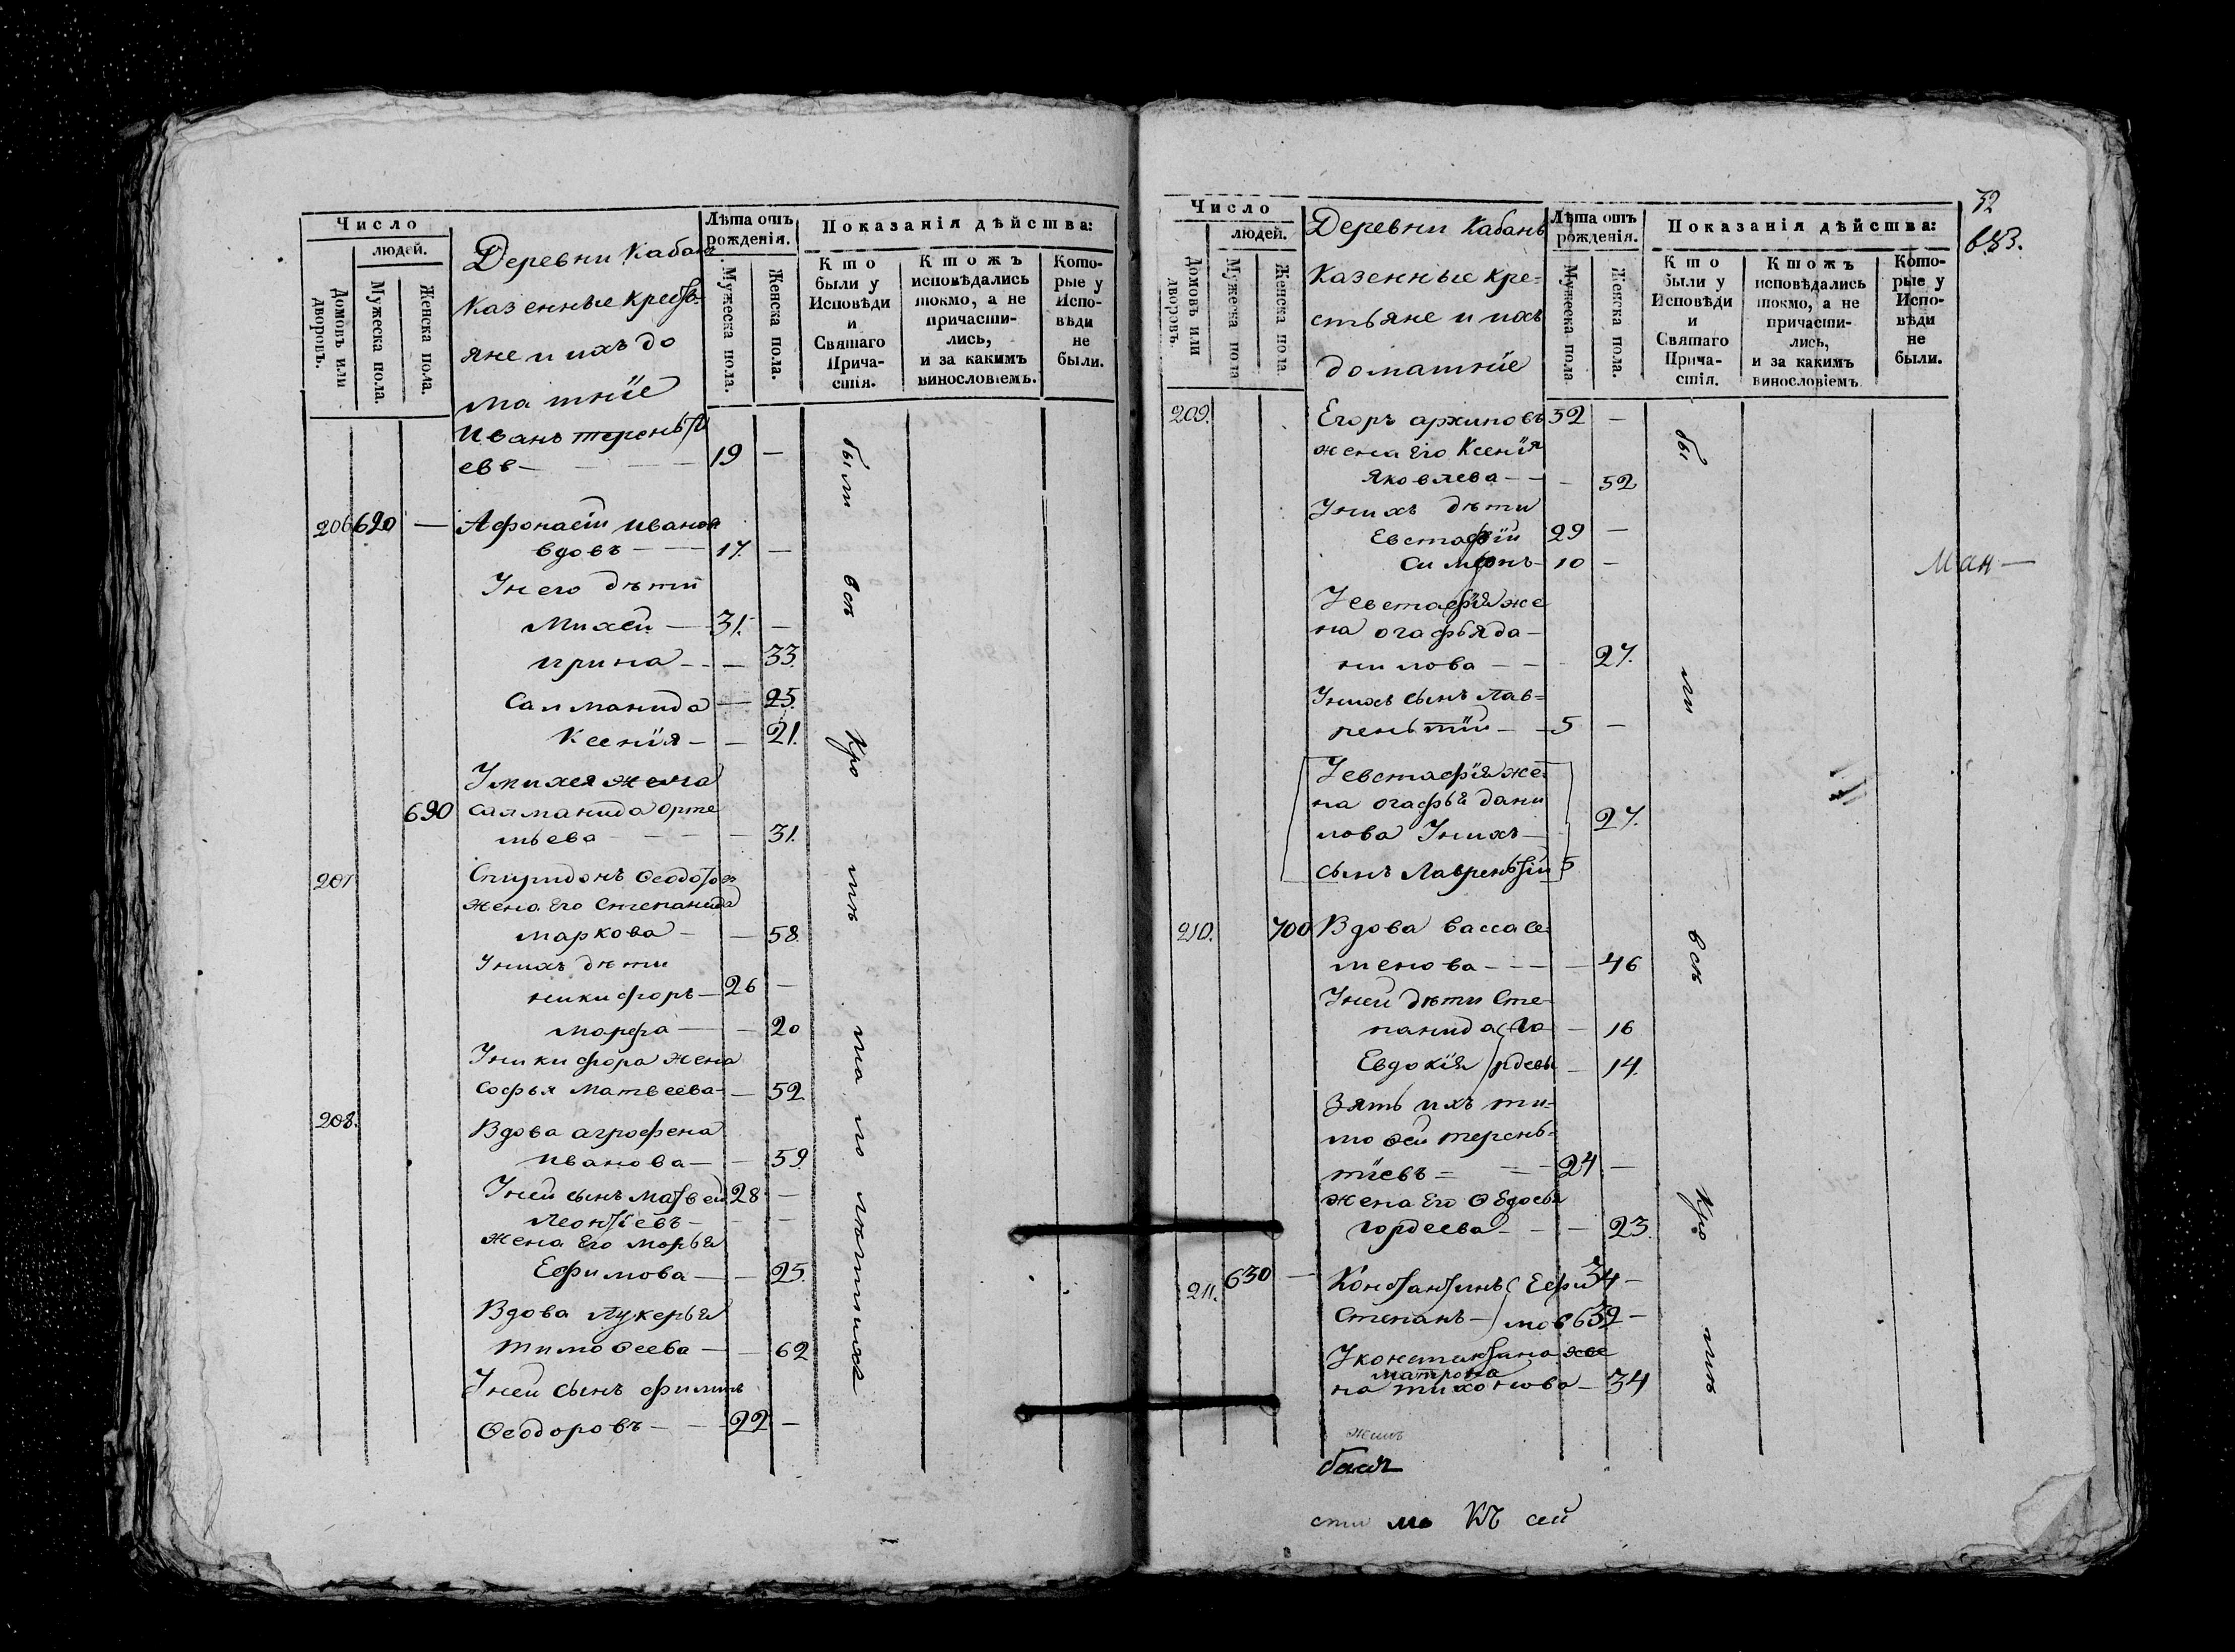 Число
людей.
Домовъ или дворовъ.
Мужеска пола.
Женска пола.
Деревни Кабанъ
казенные крестъ
яне и ихъ до
машнїе
Лѣта отъ рожденія.
Мужеска пола.
Женска пола.
Показанія дѣйства:
Кто были у Исповѣди и Святаго Прича-стія.
Ктожъ исповѣдались токмо, а не причасти-лись, и за какимъ винословіемъ.
Кото-рые у Испо-вѣди не были.
Иванъ тереньти
евъ — 19 —
206 620 — Афонасіи иванов
вдовъ — 17. —
У него дѣти
Михеи — 31. —
ирина — — 33.
Салманида — 25.
Ксенїя — — 21.
У михея жена
690 салманида орте
мьева — 31.
207 Спиридонъ Ѳеодотов
жена его степанида
маркова — — 58.
У нихъ дѣти
никифоръ — 26 —
марфа — — 20
У никифора жена
софья матвеева — 52
208. Вдова агрофена
иванова — — 59.
У ней сынъ матвеи 28 —
леонтїевъ —
жена его марья
Ефимова — — 25.
Вдова лукерья
тимоѳеева — — 62
У ней сынъ филипъ
Ѳеодоровъ — 22 —
были всѣ кромѣ малолѣтнихъ
32
Число
людей.
Домовъ или дворовъ.
Мужеска пола
Женска пола
Деревни Кабанъ
казенные кре=
стьяне и ихъ
домашнїе
Лѣта отъ рожденія.
Мужеска пола
Женска пола.
Показанія дѣйства:
Кто были у Исповѣди и Святаго Прича-стія.
Ктожъ исповѣдались токмо, а не причасти-лись, и за какимъ винословіемъ.
Кото-рые у Испо-вѣди не были.
209. Егоръ архиповъ 52 —
жена его Ксенїя
Яковлева — — 52
У нихъ дѣти
Евстафїи 29 —
Симонъ — 10 —
У евстафїя же
на огафья да—
нилова — — 27.
У нихъ сынъ лав=
реньтїи — 5 —
У евстафїя же
на огафья дани
лова У нихъ — 27.
сынъ Лаврентїи 5
210. 700 Вдова васса се
менова — — 46
У ней дѣти сте-
панида Го — 16
Евдокїя рдевы — 14.
Зять ихъ ти-
моѳеи терень-
тїевъ = — 24 —
жена его овдотья
гордеева — — 23.
211. 630 — Константинъ Ефи 34 —
Степанъ — мовы 32 —
У константина же
матрона
на тихонова — 34
были всѣ кромѣ
ман—
жилъ
ста мо КЪ сей